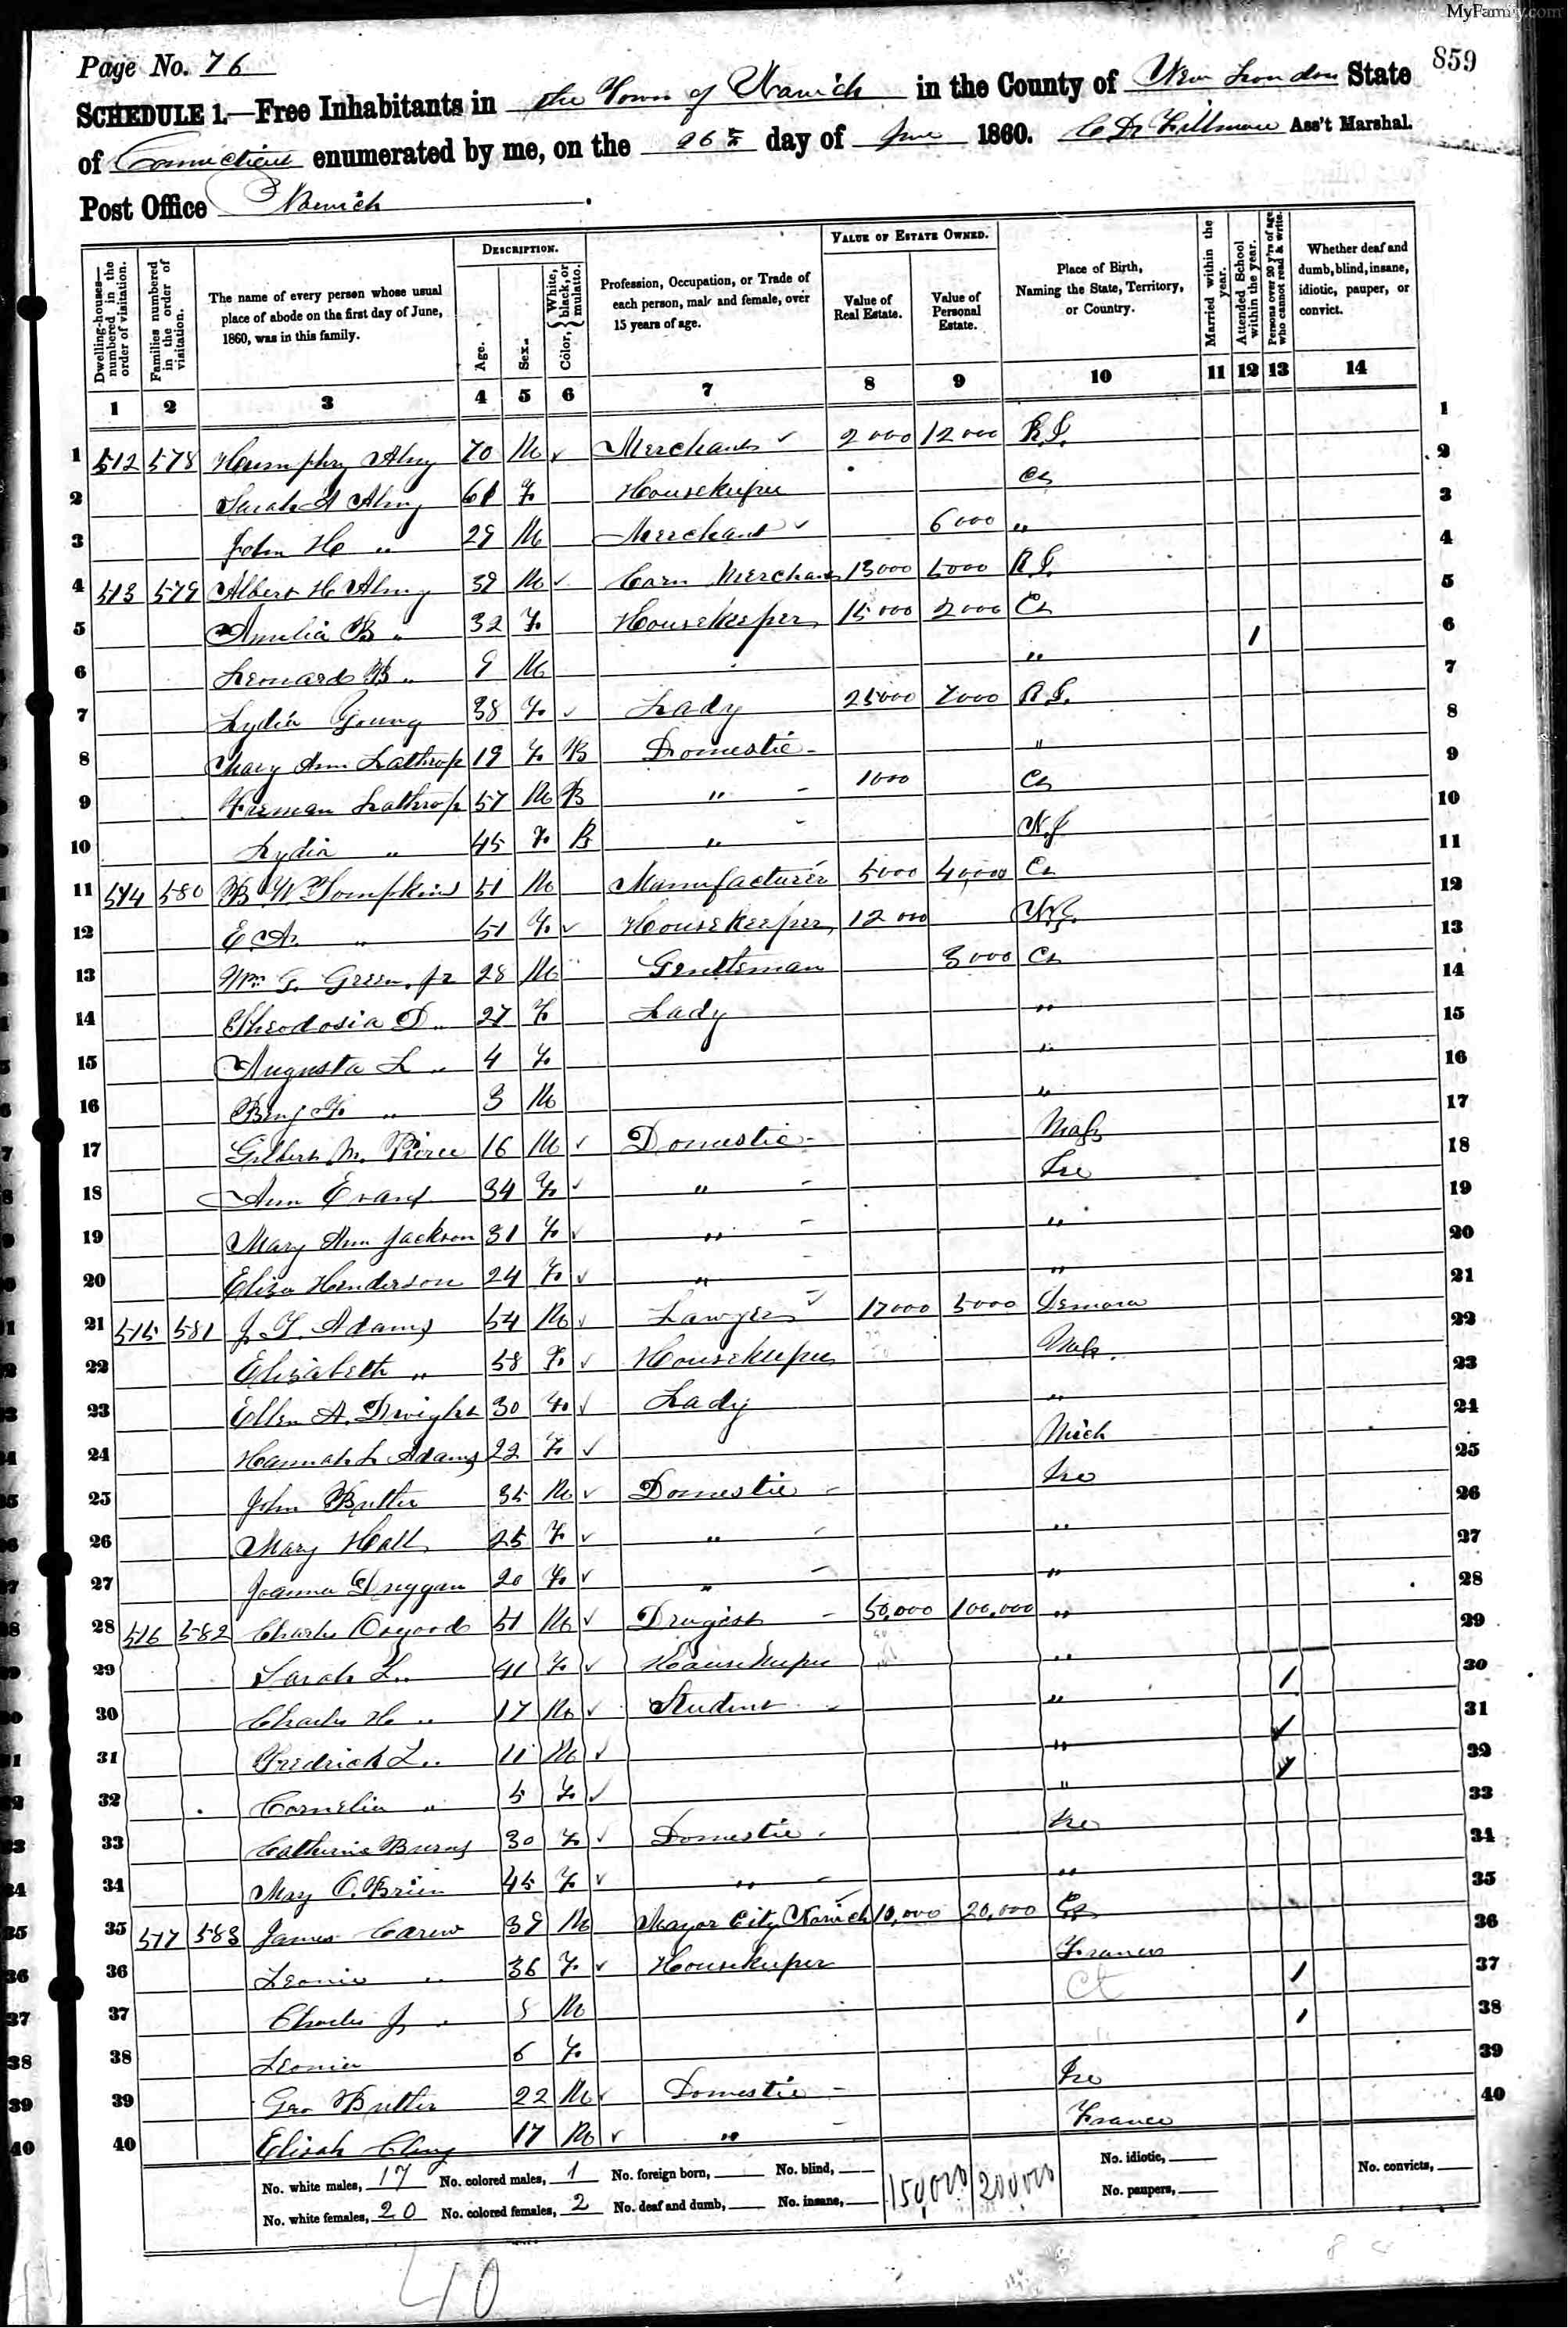 MyFamily.com
859
Page No. 76
SCHEDULE 1.—Free Inhabitants in the Town of Norwich in the County of New London State
of Connecticut enumerated by me, on the 26th day of June 1860. Ass't Marshal.
Post Office Norwich.
Dwelling-houses—numbered in the order of visitation. Families numbered in the order of visitation. The name of every person whose usual place of abode on the first day of June, 1860, was in this family. DESCRIPTION. Age. Sex. Color, White, black, or mulatto. Profession, Occupation, or Trade of each person, male and female, over 15 years of age. VALUE OF ESTATE OWNED. Value of Real Estate. Value of Personal Estate. Place of Birth, Naming the State, Territory, or Country. Married within the year. Attended School within the year. Persons over 20 y'rs of age who cannot read & write. Whether deaf and dumb, blind, insane, idiotic, pauper, or convict.
1 2 3 4 5 6 7 8 9 10 11 12 13 14
1 512 578 Humphry Almy 70 M Merchant 2000 12000 R.I. 1
2 Sarah A Almy 61 F Housekeeper Ct 2
3 John H " 29 M Merchant 6000 " 3
4 513 579 Albert H Almy 39 M Corn Merchant 13000 5000 R.I. 4
5 Amelia B " 32 F Housekeeper 15000 2000 Ct 5
6 Leonard B " 9 M " 1 6
7 Lydia Young 38 F Lady 25000 7000 R.I. 7
8 Mary Ann Lathrop 19 F B Domestic " 8
9 Freeman Lathrop 57 M B " 1000 Ct 9
10 Lydia " 45 F B " 10
11 514 580 B W Tompkins 51 M Manufacturer 5000 40,000 Ct 11
12 E A " 51 F Housekeeper 12000 12
13 Wm G. Green, Jr 28 M Gentleman 3000 Ct 13
14 Theodosia D " 27 F Lady " 14
15 Augusta L " 4 F " 15
16 Benj F " 3 M " 16
17 Gilbert M. Pierce 16 M Domestic Mass 17
18 Ann Evans 34 F " Ire 18
19 Mary Ann Jackson 31 F " " 19
20 Eliza Henderson 24 F " " 20
21 515 581 J. T. Adams 54 M Lawyer 17000 5000 21
22 Elizabeth " 58 F Housekeeper Mass. 22
23 Ellen A. Dwight 30 F Lady " 23
24 Hannah L Adams 22 F Mich 24
25 John Butler 35 M Domestic Ire 25
26 Mary Hall 25 F " " 26
27 Joanna Duggan 20 F " " 27
28 516 582 Charles Osgood 51 M Drugist 50,000 100,000 " 28
29 Sarah L " 41 F Housekeeper " 29
30 Charles H " 17 M Student " 1 30
31 Fredrick L " 11 M " 1 31
32 Cornelia " 5 F " 1 32
33 Catherine Burns 30 F Domestic Ire 33
34 Mary O.Brien 45 F " " 34
35 517 583 James Carew 39 M Mayor City Norwich 10,000 20,000 Ct 35
36 Leonie " 36 F Housekeeper France 36
37 Charles J " 8 M Ct 1 37
38 Leonie 6 F 1 38
39 Geo Butler 22 M Domestic Ire 39
40 17 M " France 40
No. white males, 17 No. colored males, 1 No. foreign born, No. blind, No. idiotic, No. convicts,
No. white females, 20 No. colored females, 2 No. deaf and dumb, No. insane, 150,000 200000 No. paupers,
40